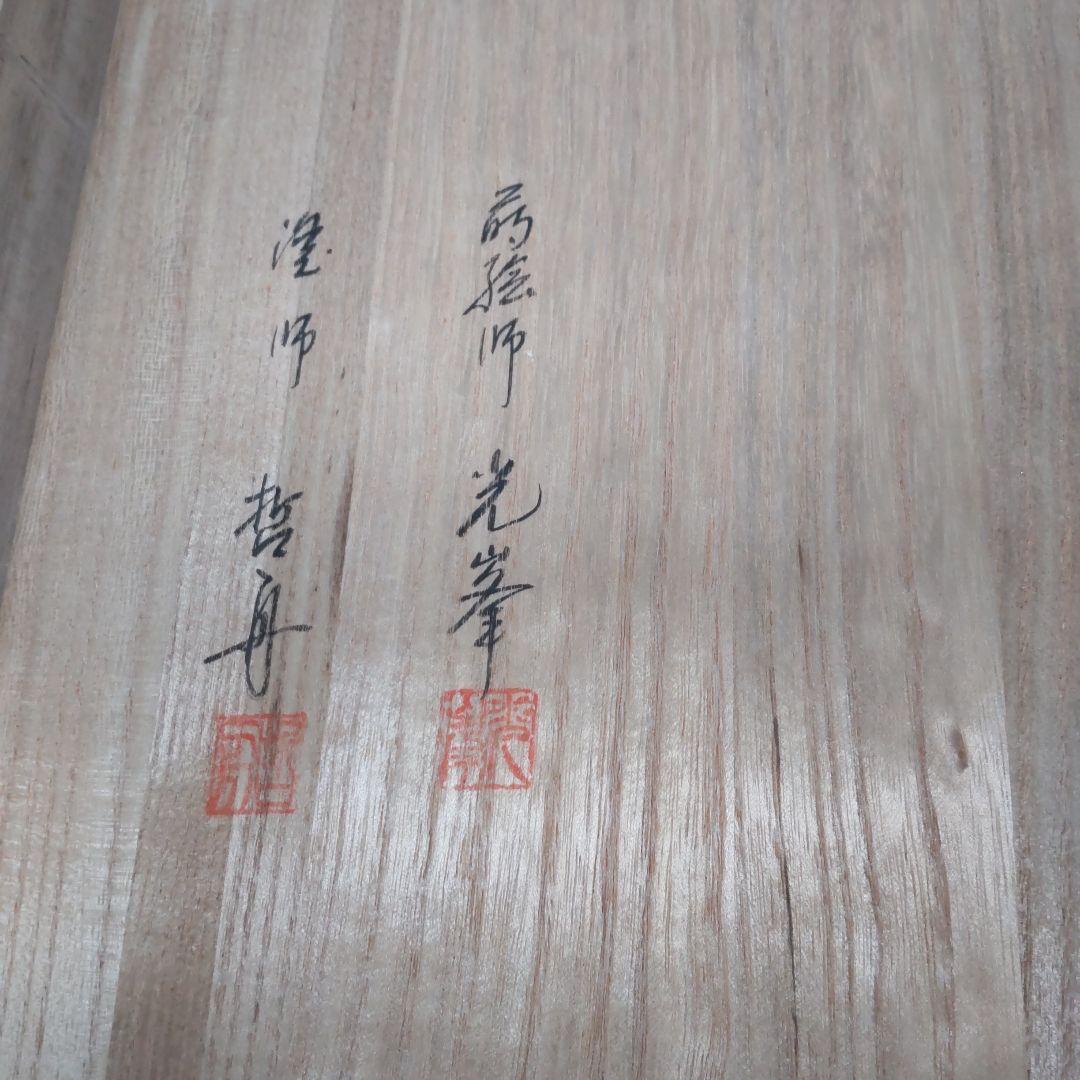 蒔絵師 光峯
塗師 哲舟